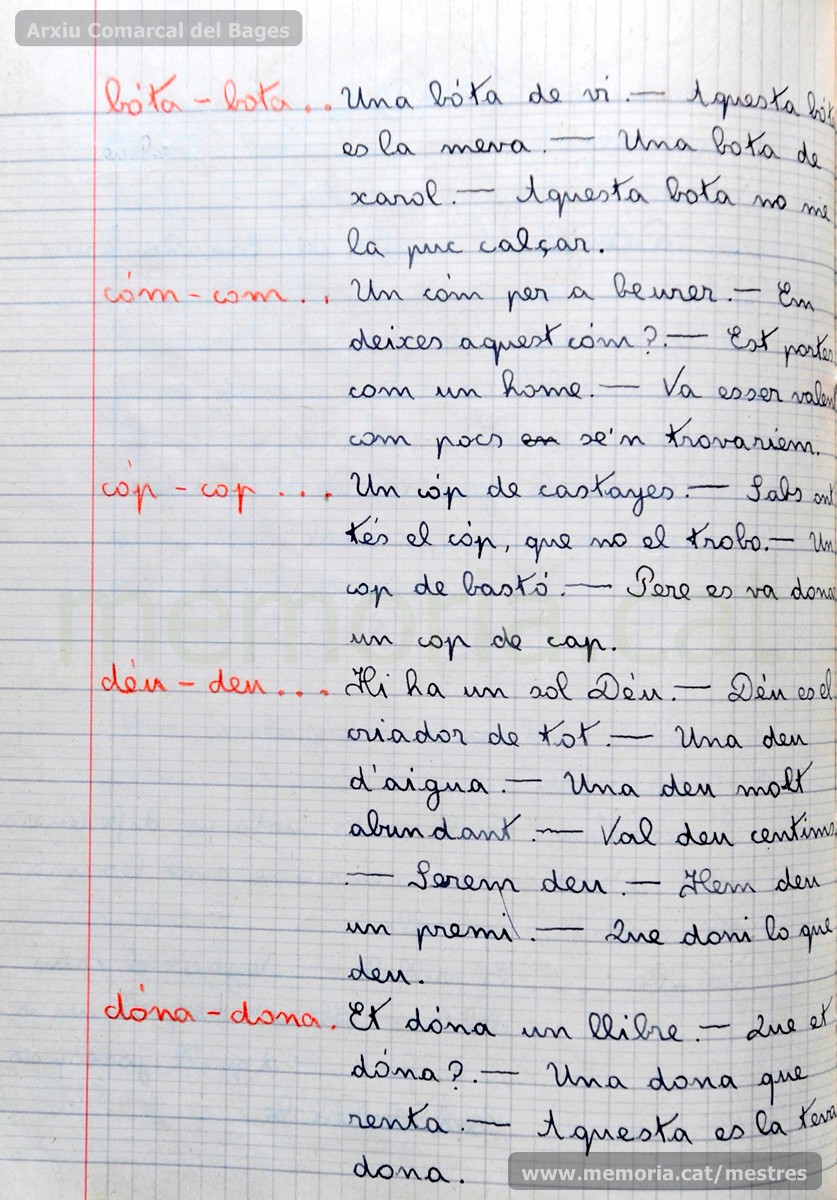 Arxiu Comarcal del Bages
bóta - bota .. Una bóta de vi. — Aquesta bóta
es la meva. — Una bota de
xarol. — Aquesta bota no me
la puc calçar.
cóm - com .. Un cóm per a beurer. — Em
deixes aquest cóm?. — Est portes
com un home. — Va esser valent
com pocs em se'n trovariem.
cóp - cop ... Un cóp de castayes. — Sabs ont
tés el cóp, que no el trobo. — Un
cop de bastó. — Pere es va dona
un cop de cap.
déu - deu ... Hi ha un sol Déu. — Déu es el
criador de tot. — Una deu
d'aigua. — Una deu molt
abundant. — Val deu centims.
— Serem deu. — Hem deu
un premi. — Que doni lo que
deu.
dóna - dona. Et dóna un llibre. — Que et
dóna?. — Una dona que
renta. — Aquesta es la teva
dona.
www.memoria.cat/mestres